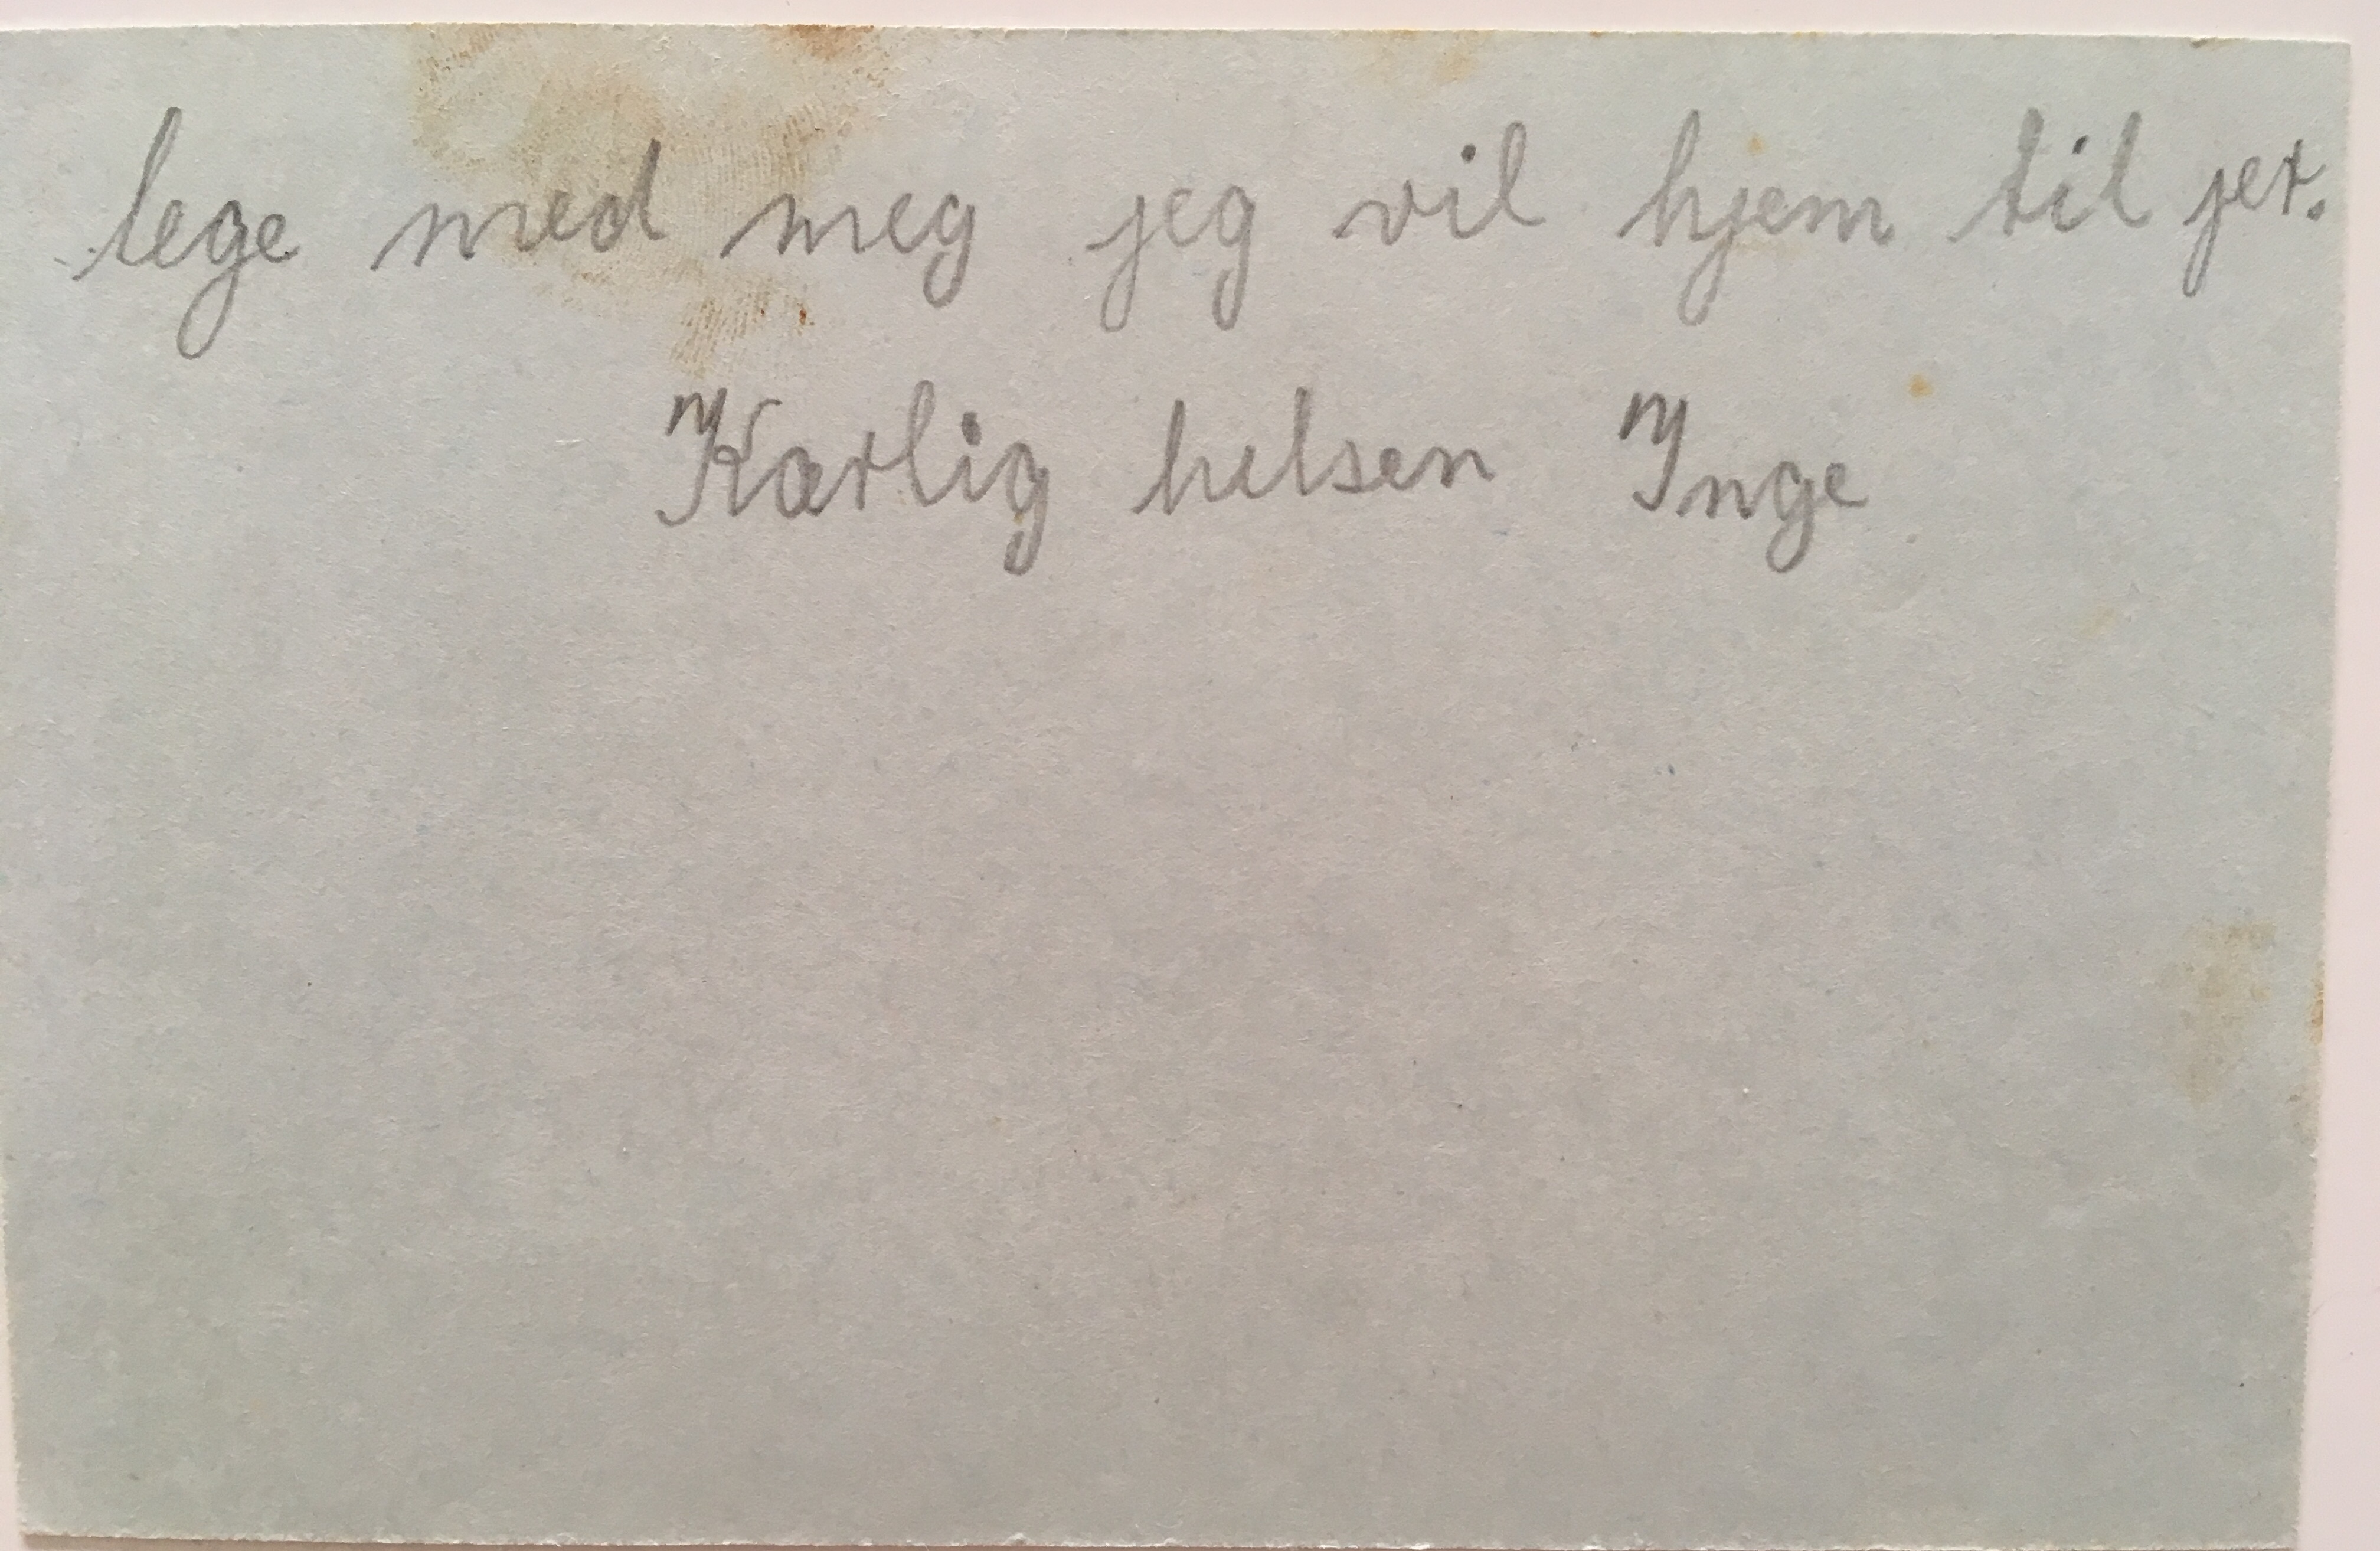 lege med meg jeg vil hjem til jer.
Kærlig helsen Inge